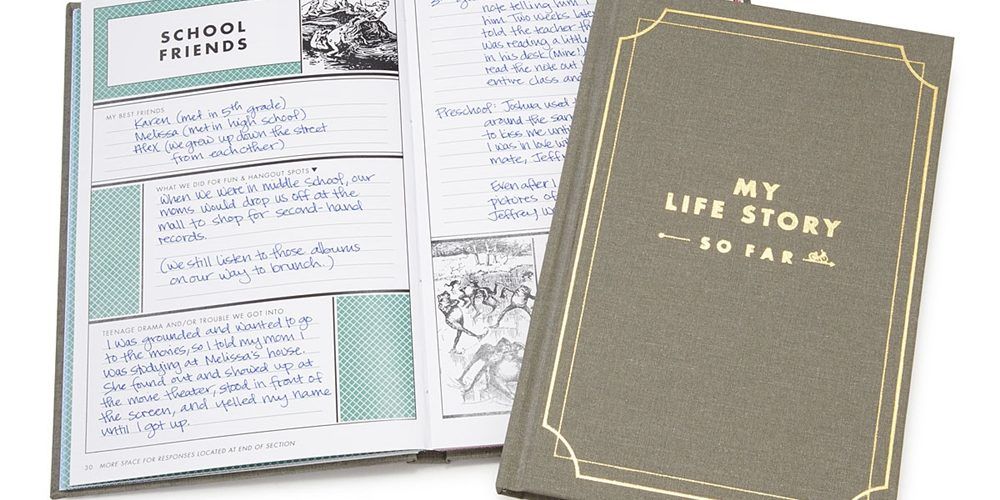 SCHOOL
FRIENDS
MY BEST FRIENDS
Karen (met in 5th grade)
Melissa (met in high school)
Alex (we grew up down the street
from each other)
WHAT WE DID FOR FUN & HANGOUT SPOTS▼
When we were in middle school, our
moms would drop us off at the
mall to shop for second-hand
records.
(we still listen to those albums
on our way to brunch.)
TEENAGE DRAMA AND/OR TROUBLE WE GOT INTO
I was grounded and wanted to go
to the movies, so I told my mom I
was studying at Melissa's house.
She found out and showed up at
the movie theater, stood in front of
the screen, and yelled my name
until I got up.
30 MORE SPACE FOR RESPONSES LOCATED AT END OF SECTION
note telling him
him. Two weeks later
told the teacher
was reading a little
in his desk (Mine!)
read the note out
entire class and
Preschool: Joshua used
around the
to kiss me until
I was in love
mate, Jeffr
Even after I
pictures of
Jeffrey w
MY
LIFE STORY
SO FAR